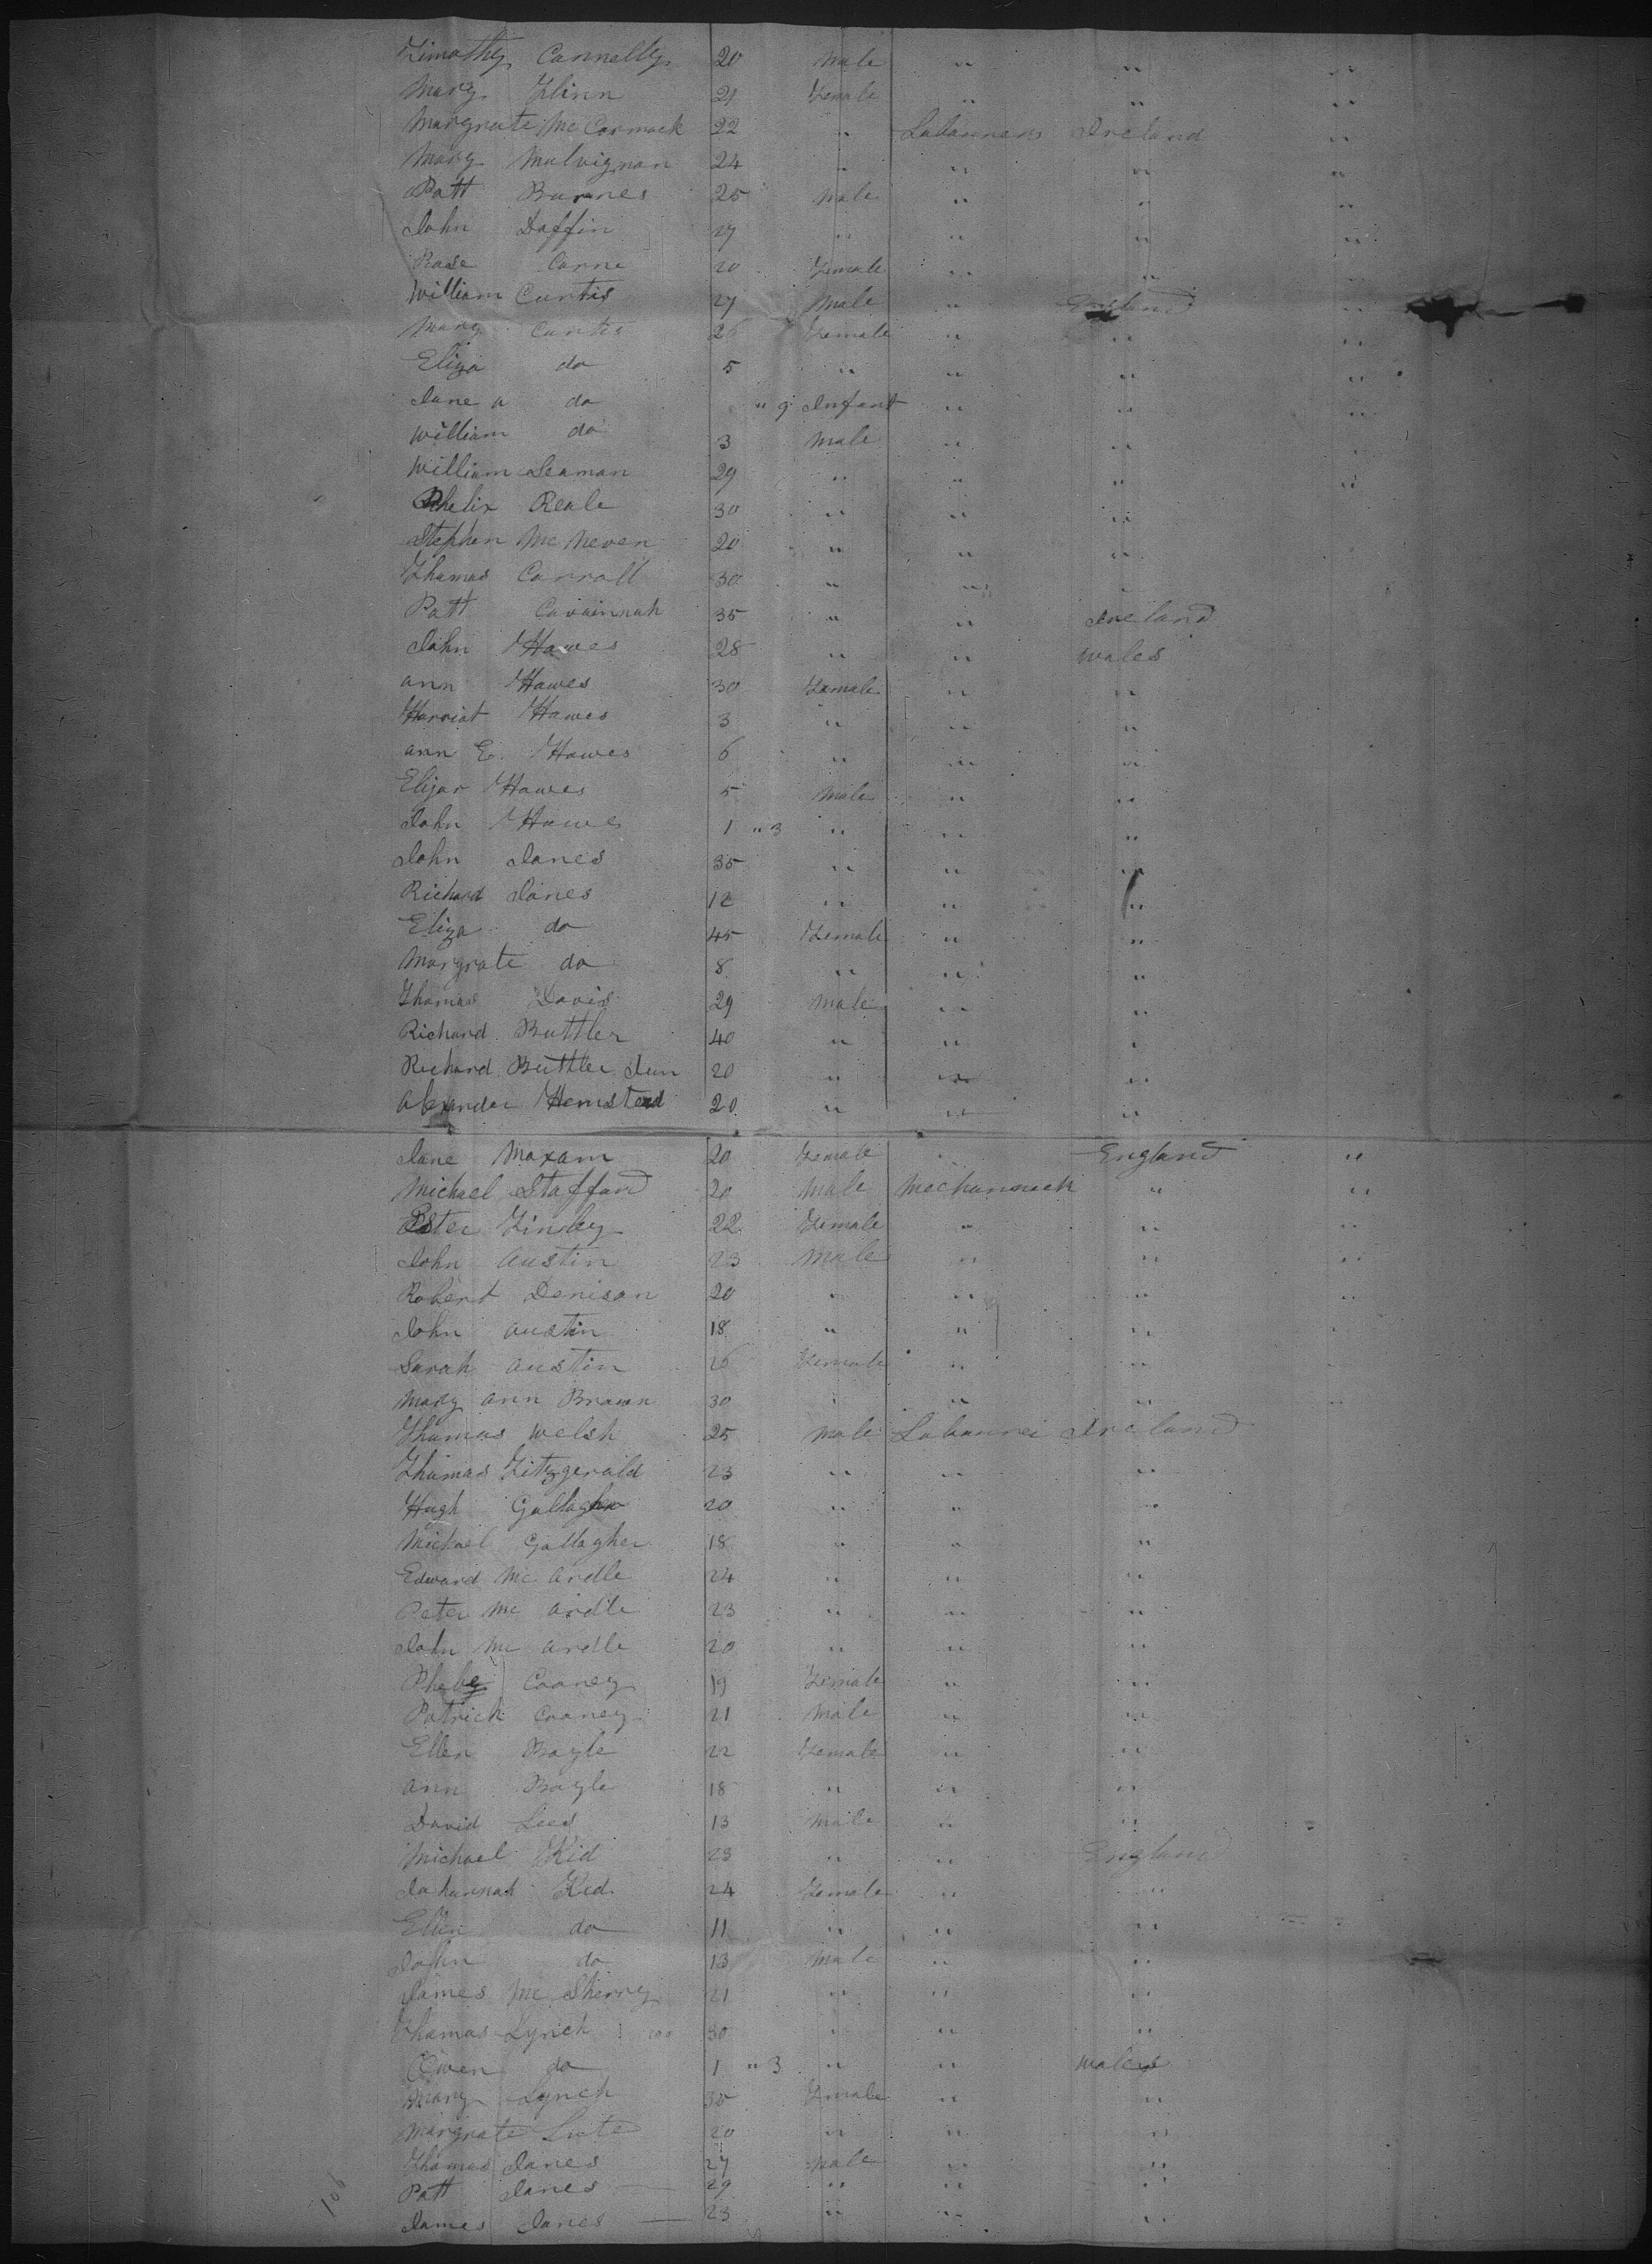 Timothy Connelly 20 Male " " "
Mary Flinn 21 Female " " "
Margrate McCormack 22 " Labourers Ireland "
Mary Mulvignan 24 " " " "
Patt Burnes 25 Male " " "
John Daffin 27 " " " "
Rose Carne 20 Female " "
William Curtis 27 Male " England "
Mary Curtis 26 Female " " "
Eliza do 5 " " " "
Jane a do " 9 Infant " " "
William do 3 Male " "
William Seaman 29 " " " "
Phelix Reale 30 " " "
Stephen McNeven 20 " " "
Thomas Carroll 30 " " "
Patt Cavainnah 35 " " Ireland
John Hawes 28 " " Wales
ann Hawes 30 Female " "
Harriat Hawes 3 " " "
ann E. Hawes 6 " " "
Elijar Hawes 5 Male " "
John Hawes 1 " 3 " " "
John Jones 35 " " "
Richard Jones 12 " " "
Eliza do 45 Female " "
Margrate do 8 " " "
Thomas Davis 29 Male " "
Richard Buttler 40 " " "
Richard Buttler Jun 20 " " "
alexander Hemstead 20 " " "
Jane Moxam 20 Female " England "
Michael Staffard 20 Male Mechannick " "
Ester 22 Female " " "
John austin 23 Male " " "
Robert Denison 20 " " " "
John austin 18 " " "
Sarah austin 26 Female " "
Mary ann Brawn 30 " " "
Thomas Welsh 25 Male Labourer Ireland
Thomas Fitzgerald 23 " " "
Hugh Gallagher 20 " " "
Michael Gallagher 18 " " "
Edward Mc ardle 24 " " "
Peter Mc ardle 23 " " "
John Mc ardle 20 " " "
Pheby Cooney 19 Female " "
Patrick Cooney 21 Male " "
Ellen Boyle 22 Female " "
ann Boyle 18 " " "
David Lees 13 Male " "
Michael Kid 23 " " England
Johannah Kid 24 Female " "
Ellen do 11 " " "
John do 13 Male " "
James McSherry 21 " " "
Thomas Lynch 30 " " "
Owen do 1 " 3 " " Wales
Mary Lynch 35 Female " "
Margrate 20 " " "
Thomas Jones 27 Male " "
Patt Jones 29 " " "
James Jones 23 " " "
108